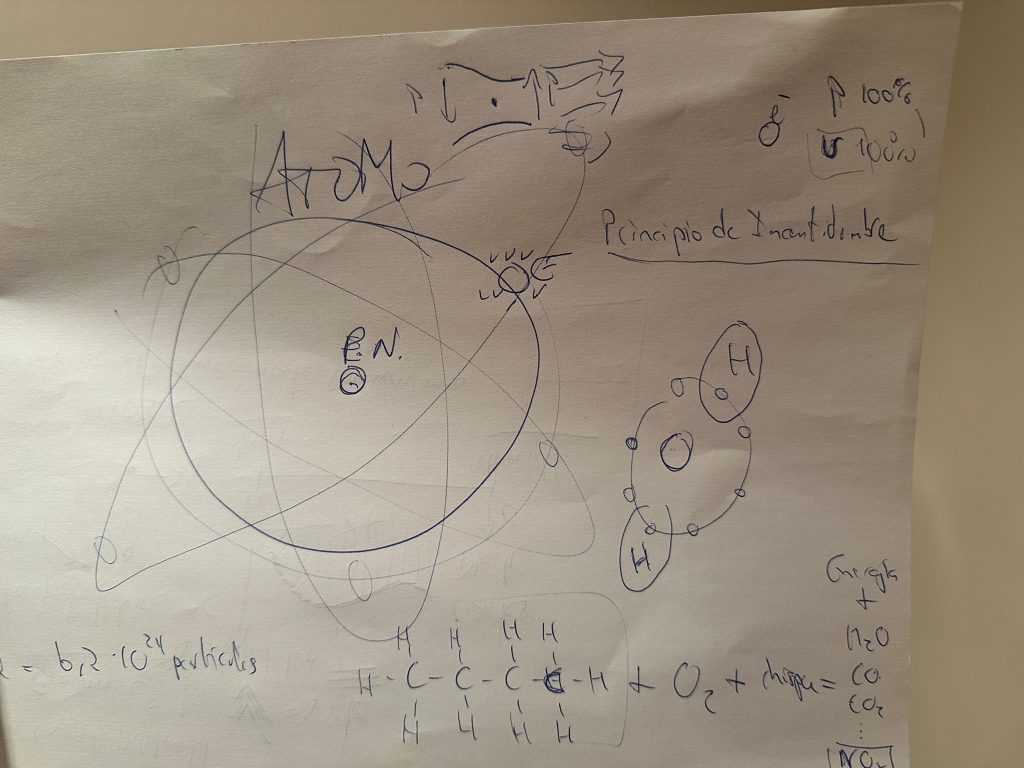 ÁTOMO
P 100%
V 100%
Principio de Incertidumbre
P.N.
H
O
H
= 6,2 · 10²⁴ partículas
H H H H
H - C - C - C - C - H + O₂ + chispa =
H H H H
Energía
+
H₂O
CO
CO₂
⋮
NOₓ